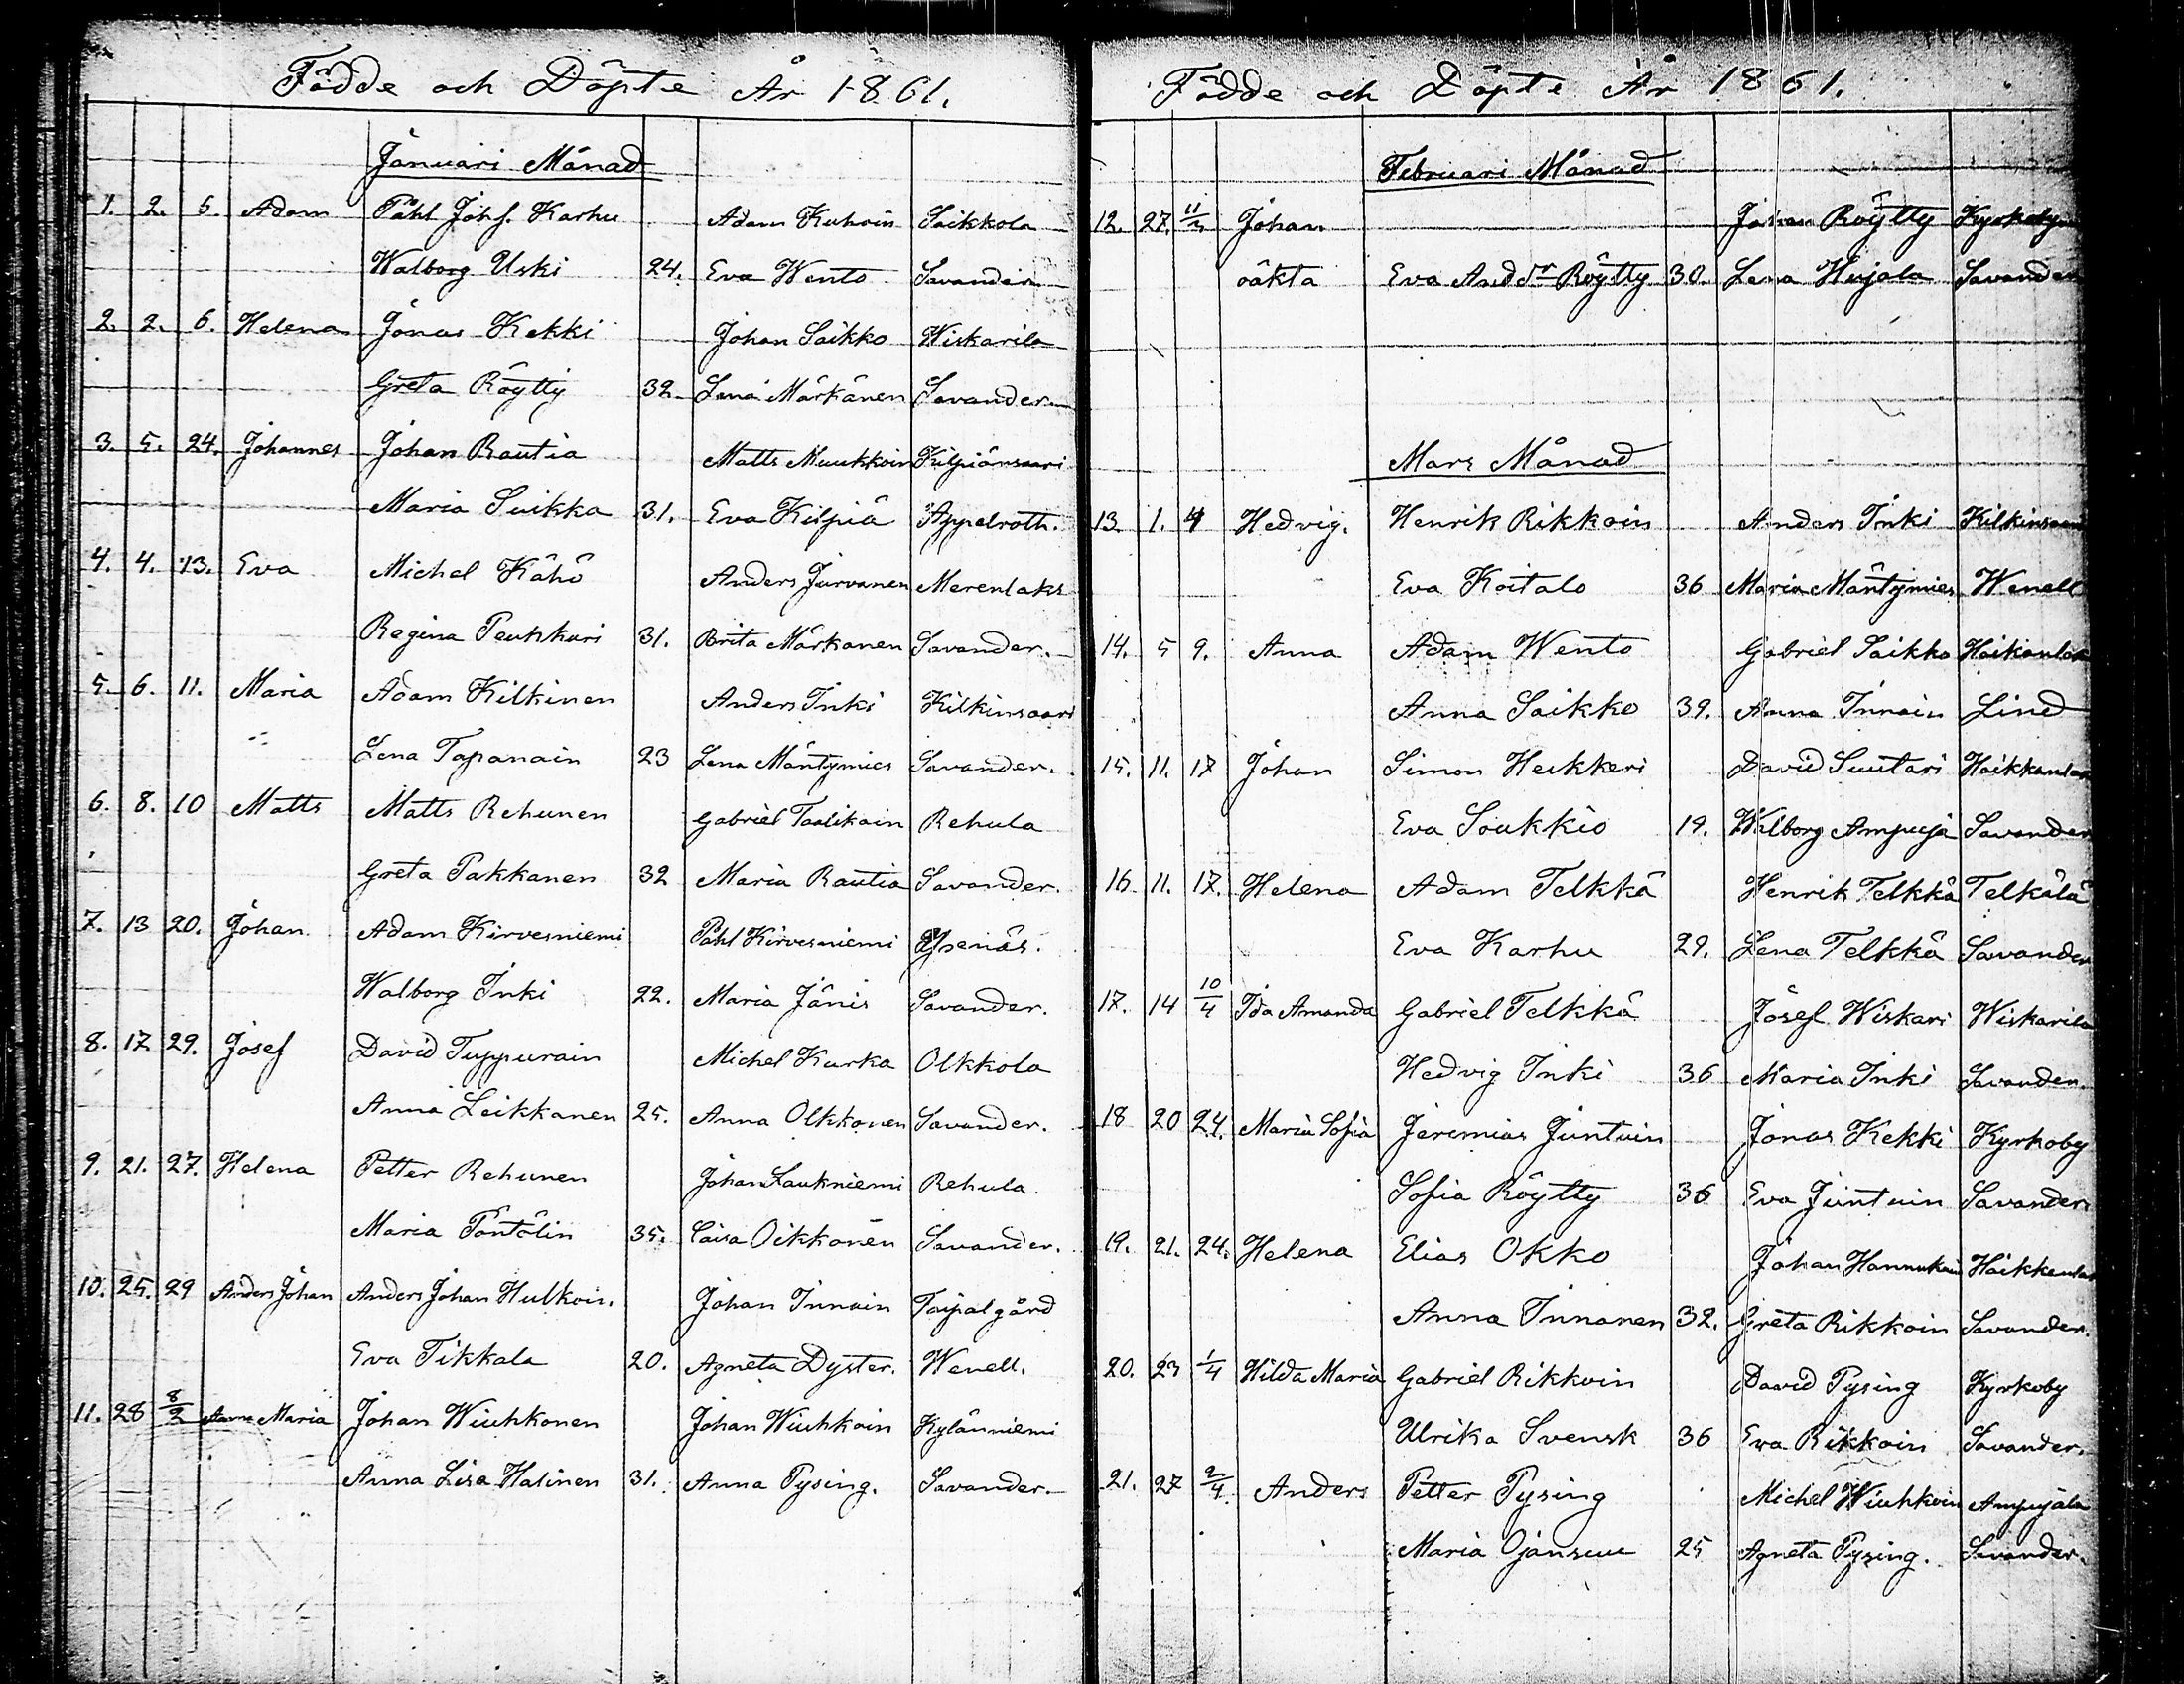 Födde och Döpte År 1861.
Januari Månad
1. 2. 5. Adam Påhl Johs. Karhu Adam Kuhoin Saikkola
Walborg Uski 24. Eva Wento Savander
2. 2. 6. Helena Jonas Kekki Johan Saikko Wiskarila
Greta Röytty 32 Lena Märkänen Savander.
3. 5. 24. Johannes Johan Rautia Matts Muukkoin Kilpiänsaari
Maria Suikka 31. Eva Kilpiä Appelroth.
4. 4. 13. Eva Michel Kähö Anders Jurvanen Merenlaks
Regina Peuhkuri 31. Brita Märkänen Savander.
5. 6. 11. Maria Adam Kilkinen Anders Inki Kilkinsaari
Lena Tapanain 23 Lena Mäntymies Savander.
6. 8. 10 Matts Matts Rehunen Gabriel Taalikain Rehula
Greta Pakkanen 32 Maria Rautia Savander.
7. 13 20. Johan Adam Kirvesniemi Påhl Kirvesniemi
Walborg Inki 22. Maria Jänis Savander.
8. 17 29. Josef David Tuppurain Michel Kurka Olkkola
Anna Leikkanen 25. Anna Olkkonen Savander.
9. 21. 27. Helena Petter Rehunen Johan Laukniemi Rehula.
Maria Töntölin 35. Caisa Oikkonen Savander.
10. 25. 29 Anders Johan Anders Johan Hulkoin. Johan Innain Taipalgård
Eva Tikkala 20. Agneta Dyster. Wenell.
11. 28 8/2 Anna Maria Johan Wiuhkonen Johan Wiuhkoin Kylänniemi
Anna Lisa Halinen 31. Anna Pysing. Savander.
Födde och Döpte År 1861.
Februari Månad
12. 27. Johan Johan Röytty Kyrkoby
oäkta Eva Andsdr Röytty 30. Lena Hujala Savander
Mars Månad
13. 1. 4 Hedvig. Henrik Rikkoin Anders Inki Kilkinsaari
Eva Koitalo 36 Maria Mäntymies Wenell
14. 5 9. Anna Adam Wento Gabriel Saikko
Anna Saikko 39. Anna Innain Lind
15. 11. 17 Johan Simon Heikkeri David Suutari
Eva Soukkio 19. Walborg Ampuja Savander
16 11. 17. Helena Adam Telkkä Henrik Telkkä Telkälä
Eva Karhu 29. Lena Telkkä Savander
17. 14 10/4 Ida Amanda Gabriel Telkkä Josef Wiskari Wiskarila
Hedvig Inki 36 Maria Inki Savander.
18 20 24. Maria Sofia Jeremias Juntuin Jonas Kekki Kyrkoby
Sofia Röytty 36 Eva Juntuin Savander
19. 21. 24. Helena Elias Okko Johan Hannukain
Anna Innanen 32. Greta Rikkoin Savander.
20. 23 1/4 Hilda Maria Gabriel Rikkoin David Pysing Kyrkoby
Ulrika Svensk 36 Eva Rikkoin Savander.
21. 27 2/4. Anders Petter Pysing Michel Wiuhkoin Ampujala
Maria Ojansuu 25 Agneta Pysing. Savander.